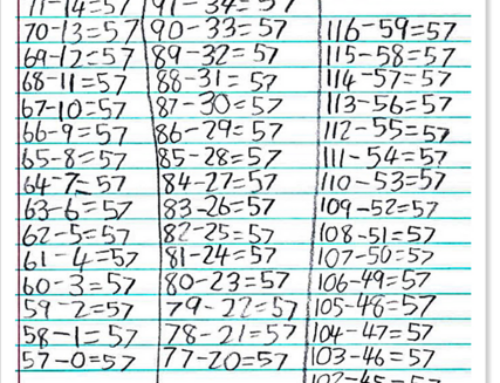 71-14=57
70-13=57
69-12=57
68-11=57
67-10=57
66-9=57
65-8=57
64-7=57
63-6=57
62-5=57
61-4=57
60-3=57
59-2=57
58-1=57
57-0=57
91-34=57
90-33=57
89-32=57
88-31=57
87-30=57
86-29=57
85-28=57
84-27=57
83-26=57
82-25=57
81-24=57
80-23=57
79-22=57
78-21=57
77-20=57
116-59=57
115-58=57
114-57=57
113-56=57
112-55=57
111-54=57
110-53=57
109-52=57
108-51=57
107-50=57
106-49=57
105-48=57
104-47=57
103-46=57
102-45=57